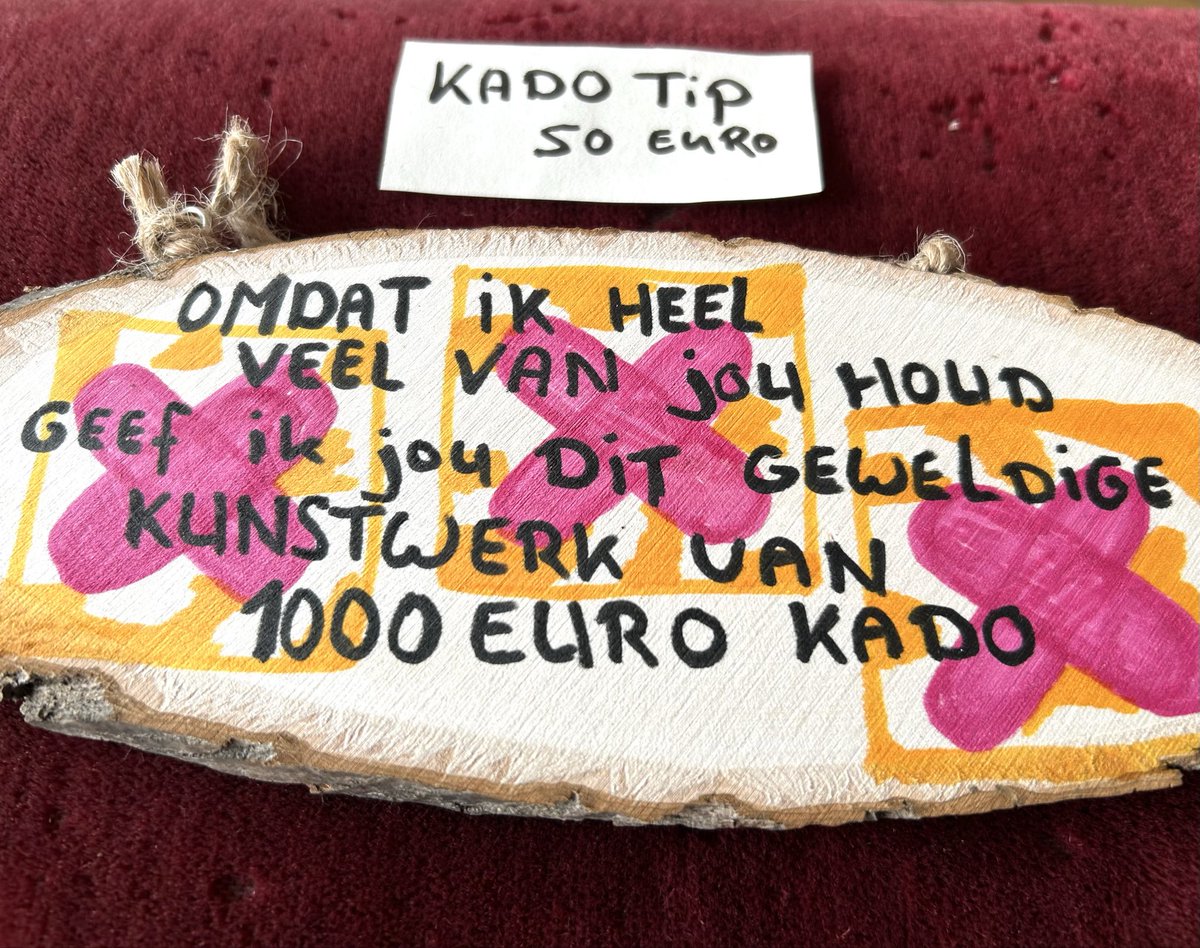 KADO Tip
50 EURO
OMDAT ik HEEL
VEEL VAN jou HOUD
GEEf ik jou DiT GEWELDiGE
KUNSTWERK VAN
1000 EURO KADO